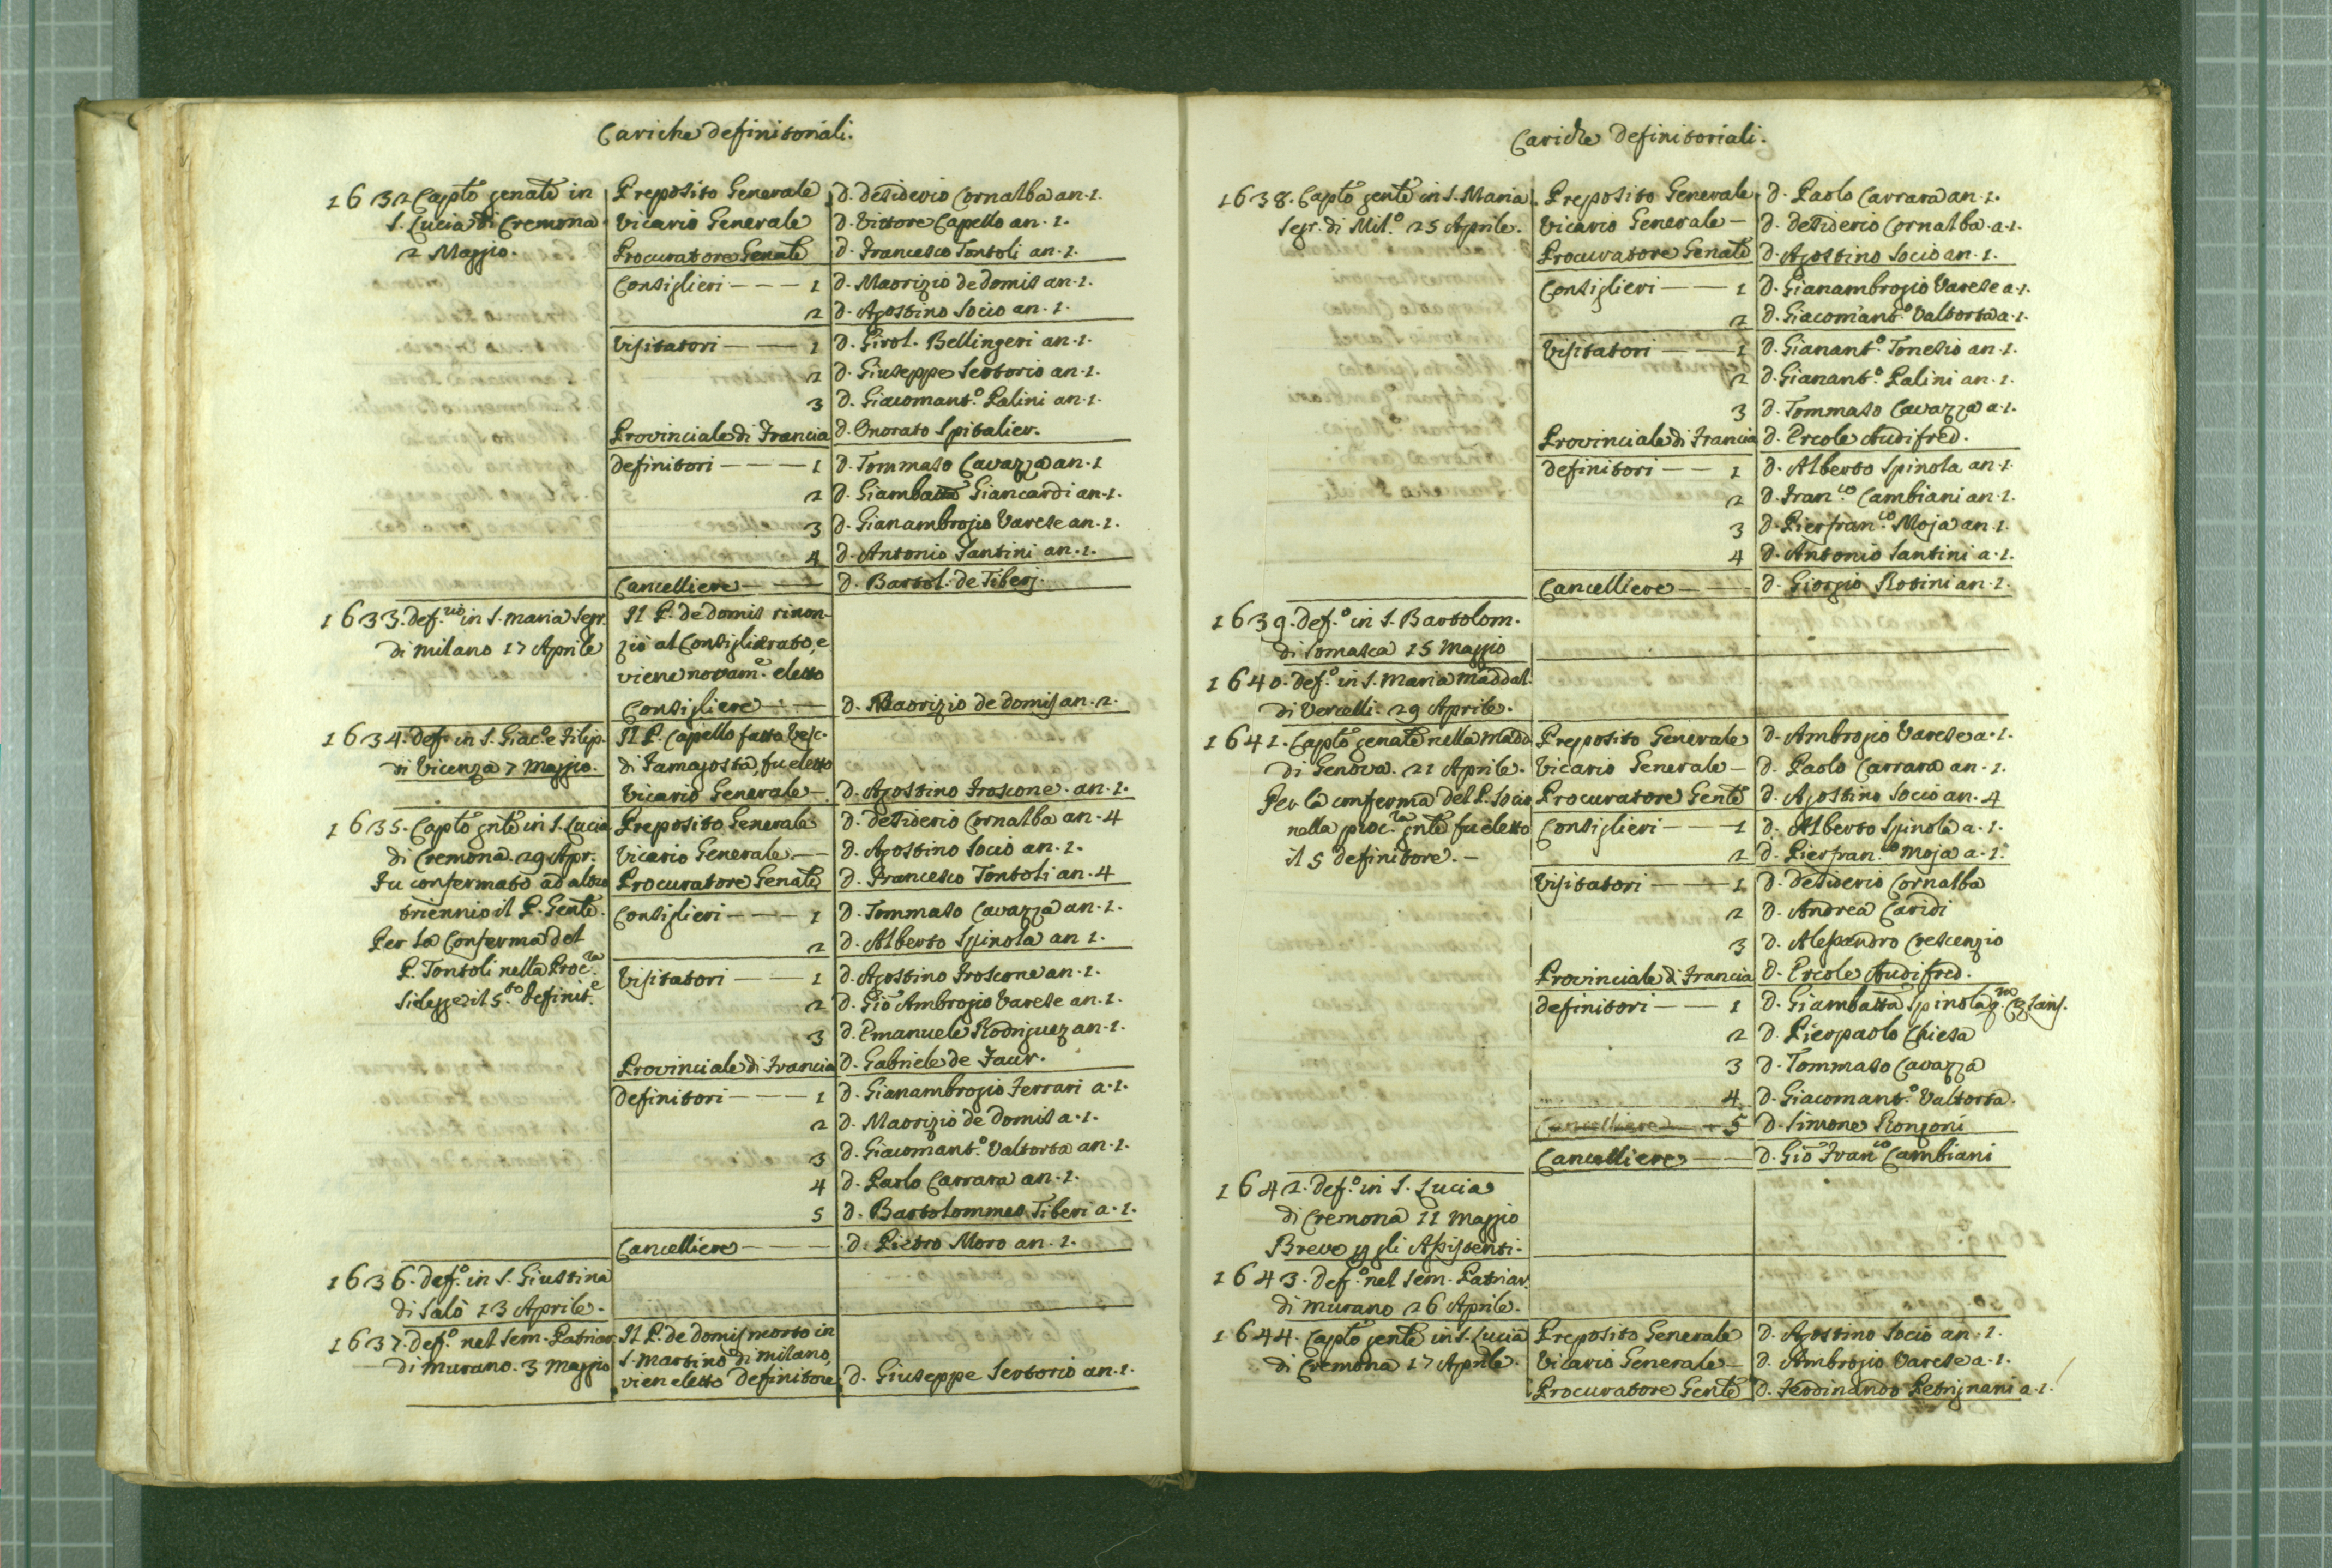 Cariche definitoriali.
1632 Capto genale in Preposito Generale d. Desiderio Cornalba an. 1.
S. Lucia di Cremona Vicario Generale d. Vittore Capello an. 1.
2 Maggio. Procuratore Genale d. Francesco Tontoli an. 1.
Consiglieri - - - 1 d. Maorizio de Domis an. 1.
2 d. Agostino Socio an. 1.
Visitatori - - 1 d. Girol. Bellingeri an. 1.
2 d. Giuseppe Sertorio an. 1.
3 d. Giacomant.o Palini an. 1.
Provinciale di Francia d. Onorato Spitalier.
definitori - - - 1 d. Tommaso Cavazza an. 1
2 d. Giambatta Giancardi an. 1.
3 d. Gianambrogio Varese an. 1.
4 d. Antonio Santini an. 1.
Cancelliere - - d. Bartol. de Tiberj.
1633. def.rio in S. Maria Segr. Il P. de Domis rinon-
di Milano 17 Aprile ziò al Consiglierato, e
viene novam.e eletto
Consigliere - - d. Maorizio de Domis an. 2.
1634. def. in S. Giac.o e Filip. Il P. Capello fatto Vesc.
di Vicenza 7 Maggio. di Famagosta, fu eletto
Vicario Generale - d. Agostino Froscone. an. 1.
1635. Capto gnle in S. Lucia Preposito Generale d. Desiderio Cornalba an. 4
di Cremona. 29 Apr. Vicario Generale - - d. Agostino Socio an. 1.
Fu confermato ad altro Procuratore Genale d. Francesco Tontoli an. 4
triennio il P. Genle. Consiglieri - - - 1 d. Tommaso Cavazza an. 1.
Per la Conferma del 2 d. Alberto Spinola an 1.
P. Tontoli nella Proc.ra Visitatori - - 1 d. Agostino Froscone an. 1.
si elegge il 5.to Definit.e 2 d. Gio Ambrogio Varese an. 1.
3 d. Emanuele Rodriguez an. 1.
Provinciale di Francia d. Gabriele de Faur.
definitori - - - 1 d. Gianambrogio Ferrari a. 1.
2 d. Maorizio de Domis a. 1.
3 d. Giacomant.o Valtorta an. 1.
4 d. Paolo Carrara an. 1.
5 d. Bartolommeo Tiberi a. 1.
Cancelliere - - d. Pietro Moro an. 1.
1636. def.o in S. Giustina
di Salò 13 Aprile.
1637. def.o nel Sem. Patriar. Il P. de Domis morto in
di Murano. 3 Maggio S. Martino di Milano,
vien eletto Definitore d. Giuseppe Sertorio an. 1.
Cariche Definitoriali.
1638. Capto gente in S. Maria Preposito Generale d. Paolo Carrara an. 1.
Segr. di Mil.o 25 Aprile. Vicario Generale - d. Desiderio Cornalba. a. 1.
Procuratore Genale d. Agostino Socio an. 1.
Consiglieri - - 1 d. Gianambrogio Varese a. 1.
2 d. Giacomant.o Valtorta a. 1.
Visitatori - - 1 d. Gianant.o Tonesio an. 1.
2 d. Gianant.o Palini an. 1.
3 d. Tommaso Cavazza a. 1.
Provinciale di Francia d. Ercole Audifred.
definitori - - 1 d. Alberto Spinola an. 1.
2 d. Fran.co Cambiani an. 1.
3 d. Pierfran.co Moja an. 1.
4 d. Antonio Santini a. 1.
Cancelliere - - d. Giorgio Rosini an. 1.
1639. def.o in S. Bartolom.
di Somasca 15 Maggio
1640. def.o in S. Maria Maddal.
di Vercelli. 29 Aprile.
1641. Capto genale nella Madd. Preposito Generale d. Ambrogio Varese a. 1.
di Genova. 21 Aprile. Vicario Generale - d. Paolo Carrara an. 1.
Per la conferma del P. Socio Procuratore Genle d. Agostino Socio an. 4
nella proc.ra gnle fu eletto Consiglieri - - 1 d. Alberto Spinola a. 1.
il 5 definitore. - 2 d. Pierfran.co Moja a. 1.
Visitatori - - 1 d. Desiderio Cornalba
2 d. Andrea Caridi
3 d. Alessandro Crescenzio
Provinciale di Francia d. Ercole Audifred.
definitori - - 1 d. Giambatta Spinola
2 d. Pierpaolo Chiesa
3 d. Tommaso Cavazza
4 d. Giacomant.o Valtorta.
Cancelliere - 5 d. Simone Rongoni
Cancelliere - - d. Gio Fran.co Cambiani
1642. def.o in S. Lucia
di Cremona 11 Maggio
Breve p gli Assistenti.
1643. def.o nel Sem. Patriar.
di Murano 26 Aprile.
1644. Capto genle in S. Lucia Preposito Generale d. Agostino Socio an. 1.
di Cremona 17 Aprile. Vicario Generale - d. Ambrogio Varese a. 1.
Procuratore Genle d. Ferdinando Petrignani a. 1.